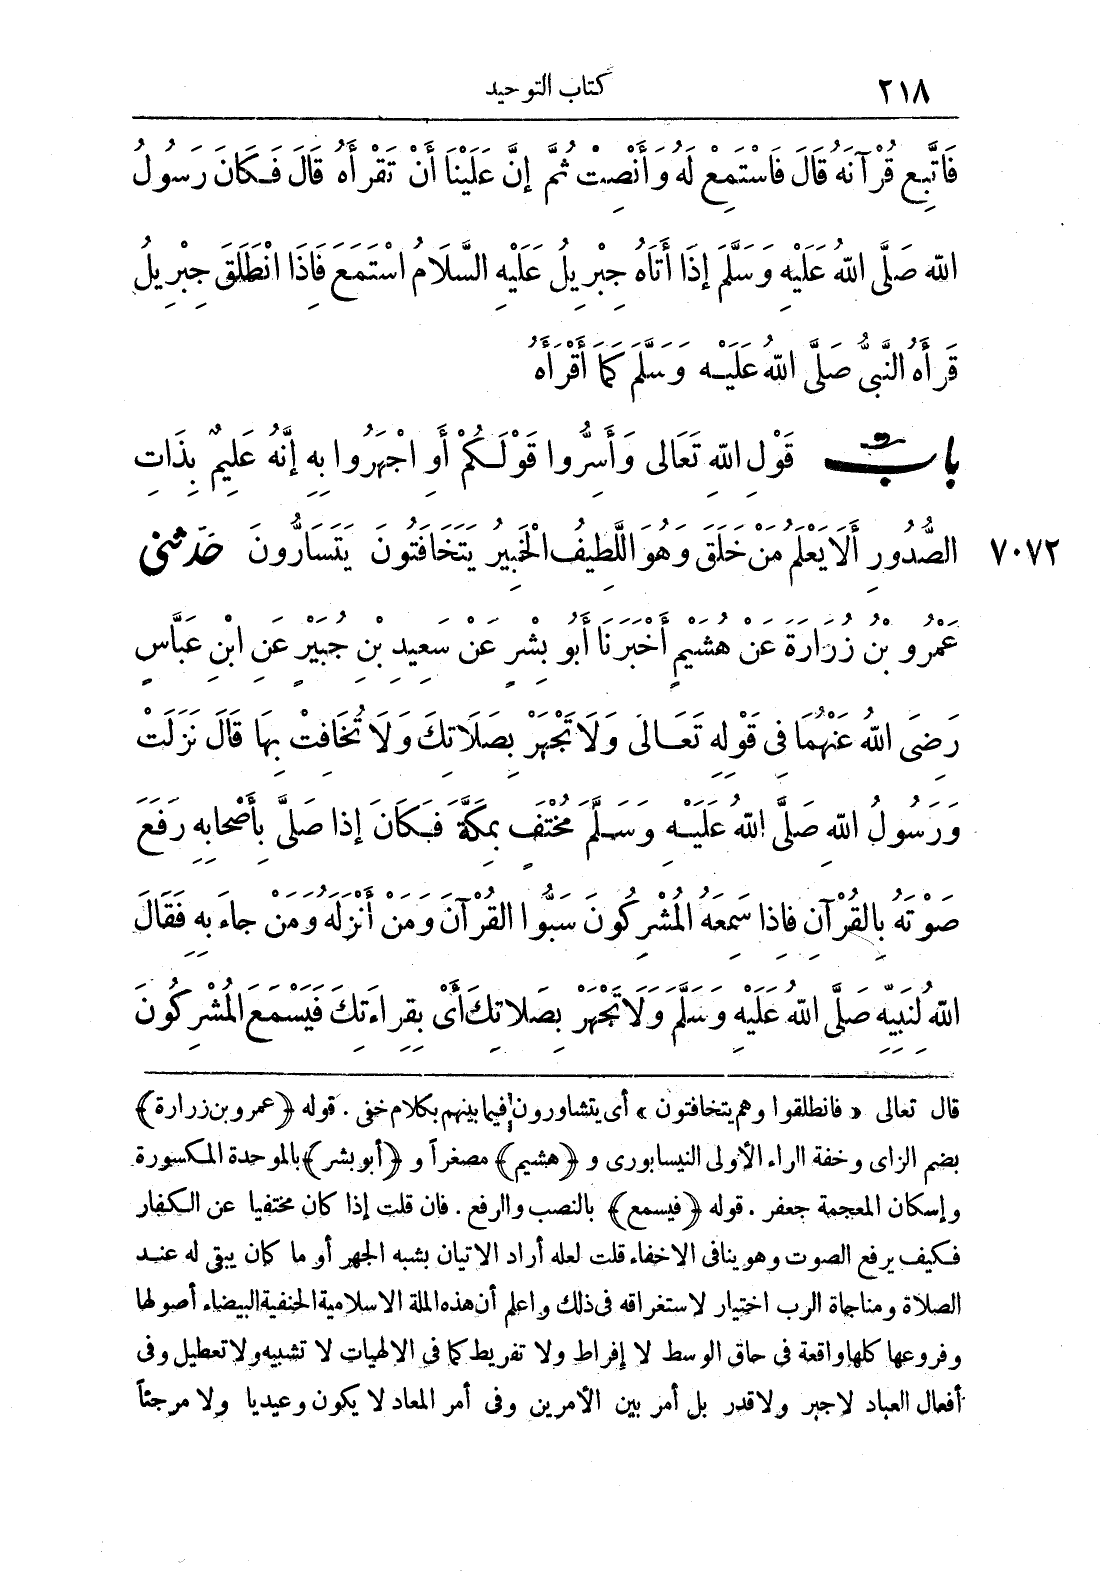 ٢١٨ كتاب التوحيد
فَاتَّبِع قُرْآنَهُ قَالَ فَاسْتَمِعْ لَهُ وَأَنْصِتْ ثُمَّ إِنَّ عَلَيْنَا أَنْ تَقْرَأَهُ قَالَ فَكَانَ رَسُولُ
اللّٰه صَلَّى اللّٰهُ عَلَيْهِ وَسَلَّمَ إِذَا أَتَاهُ جِبْرِيلُ عَلَيْهِ السَّلَامُ اسْتَمَعَ فَاذَا انْطَلَقَ جِبْرِيلُ
قَرَأَهُ النَّبِىُّ صَلَّى اللّٰهُ عَلَيْهِ وَسَلَّمَ كَمَا أَقْرَأَهُ
باب قَوْلِ اللّٰهِ تَعَالَى وَأَسِرُّوا قَوْلَكُمْ أَوِ اجْهَرُوا بِهِ إِنَّهُ عَلِيمٌ بِذَاتِ
٧٠٧٢ الصُّدُورِ أَلَا يَعْلَمُ مَنْ خَلَقَ وَهُوَ اللَّطِيفُ الْخَبِيرُ يَتَخَافَتُونَ يَتَسَارُّونَ حَدثنى
عَمْرُو بْنُ زُرَارَةَ عَنْ هُشَيْمٍ أَخْبَرَنَا أَبُو بِشْرٍ عَنْ سَعِيدِ بْنِ جُبَيْرٍ عَنِ ابْنِ عَبَّاسٍ
رَضِىَ اللّٰهُ عَنْهُمَا فِى قَوْلِهِ تَعَالَى وَلَا تَجْهَرْ بِصَلَاتِكَ وَلَا تُخَافِتْ بِهَا قَالَ نَزَلَتْ
وَرَسُولُ اللّٰهِ صَلَّى اللّٰهُ عَلَيْهِ وَسَلَّمَ مُخْتَفٍ بِمَكَّةَ فَكَانَ إِذَا صَلَّى بِأَصْحَابِهِ رَفَعَ
صَوْتَهُ بِالْقُرْآنِ فَاِذَا سَمِعَهُ الْمُشْرِكُونَ سَبُّوا الْقُرْآنَ وَمَنْ أَنْزَلَهُ وَمَنْ جَاءَ بِهِ فَقَالَ
اللّٰهُ لِنَبِيِّهِ صَلَّى اللّٰهُ عَلَيْهِ وَسَلَّمَ وَلَا تَجْهَرْ بِصَلَاتِكَ أَىْ بِقِرَاءَتِكَ فَيَسْمَعَ الْمُشْرِكُونَ
قال تعالى «فانطلقوا وهم يتخافتون» أى يتشاورون فيما بينهم بكلام خفى . قوله ﴿عمرو بن زرارة﴾
بضم الزاى وخفة الراء الأولى النيسابورى و ﴿هشيم﴾ مصغراً و ﴿أبو بشر﴾ بالموحدة المكسورة
وإسكان المعجمة جعفر . قوله ﴿فيسمع﴾ بالنصب والرفع . فان قلت إذا كان مختفيا عن الكفار
فكيف يرفع الصوت وهو ينافى الاخفاء قلت لعله أراد الاتيان بشبه الجهر أو ما كان يبقى له عند
الصلاة ومناجاة الرب اختيار لاستغراقه فى ذلك واعلم أن هذه الملة الاسلامية الحنفية البيضاء أصولها
وفروعها كلها واقعة فى حاق الوسط لا إفراط ولا تفريط كما فى الالهيات لا تشبيه ولا تعطيل وفى
أفعال العباد لاجبر ولا قدر بل أمر بين الأمرين وفى أمر المعاد لا يكون وعيديا ولا مرجئاً